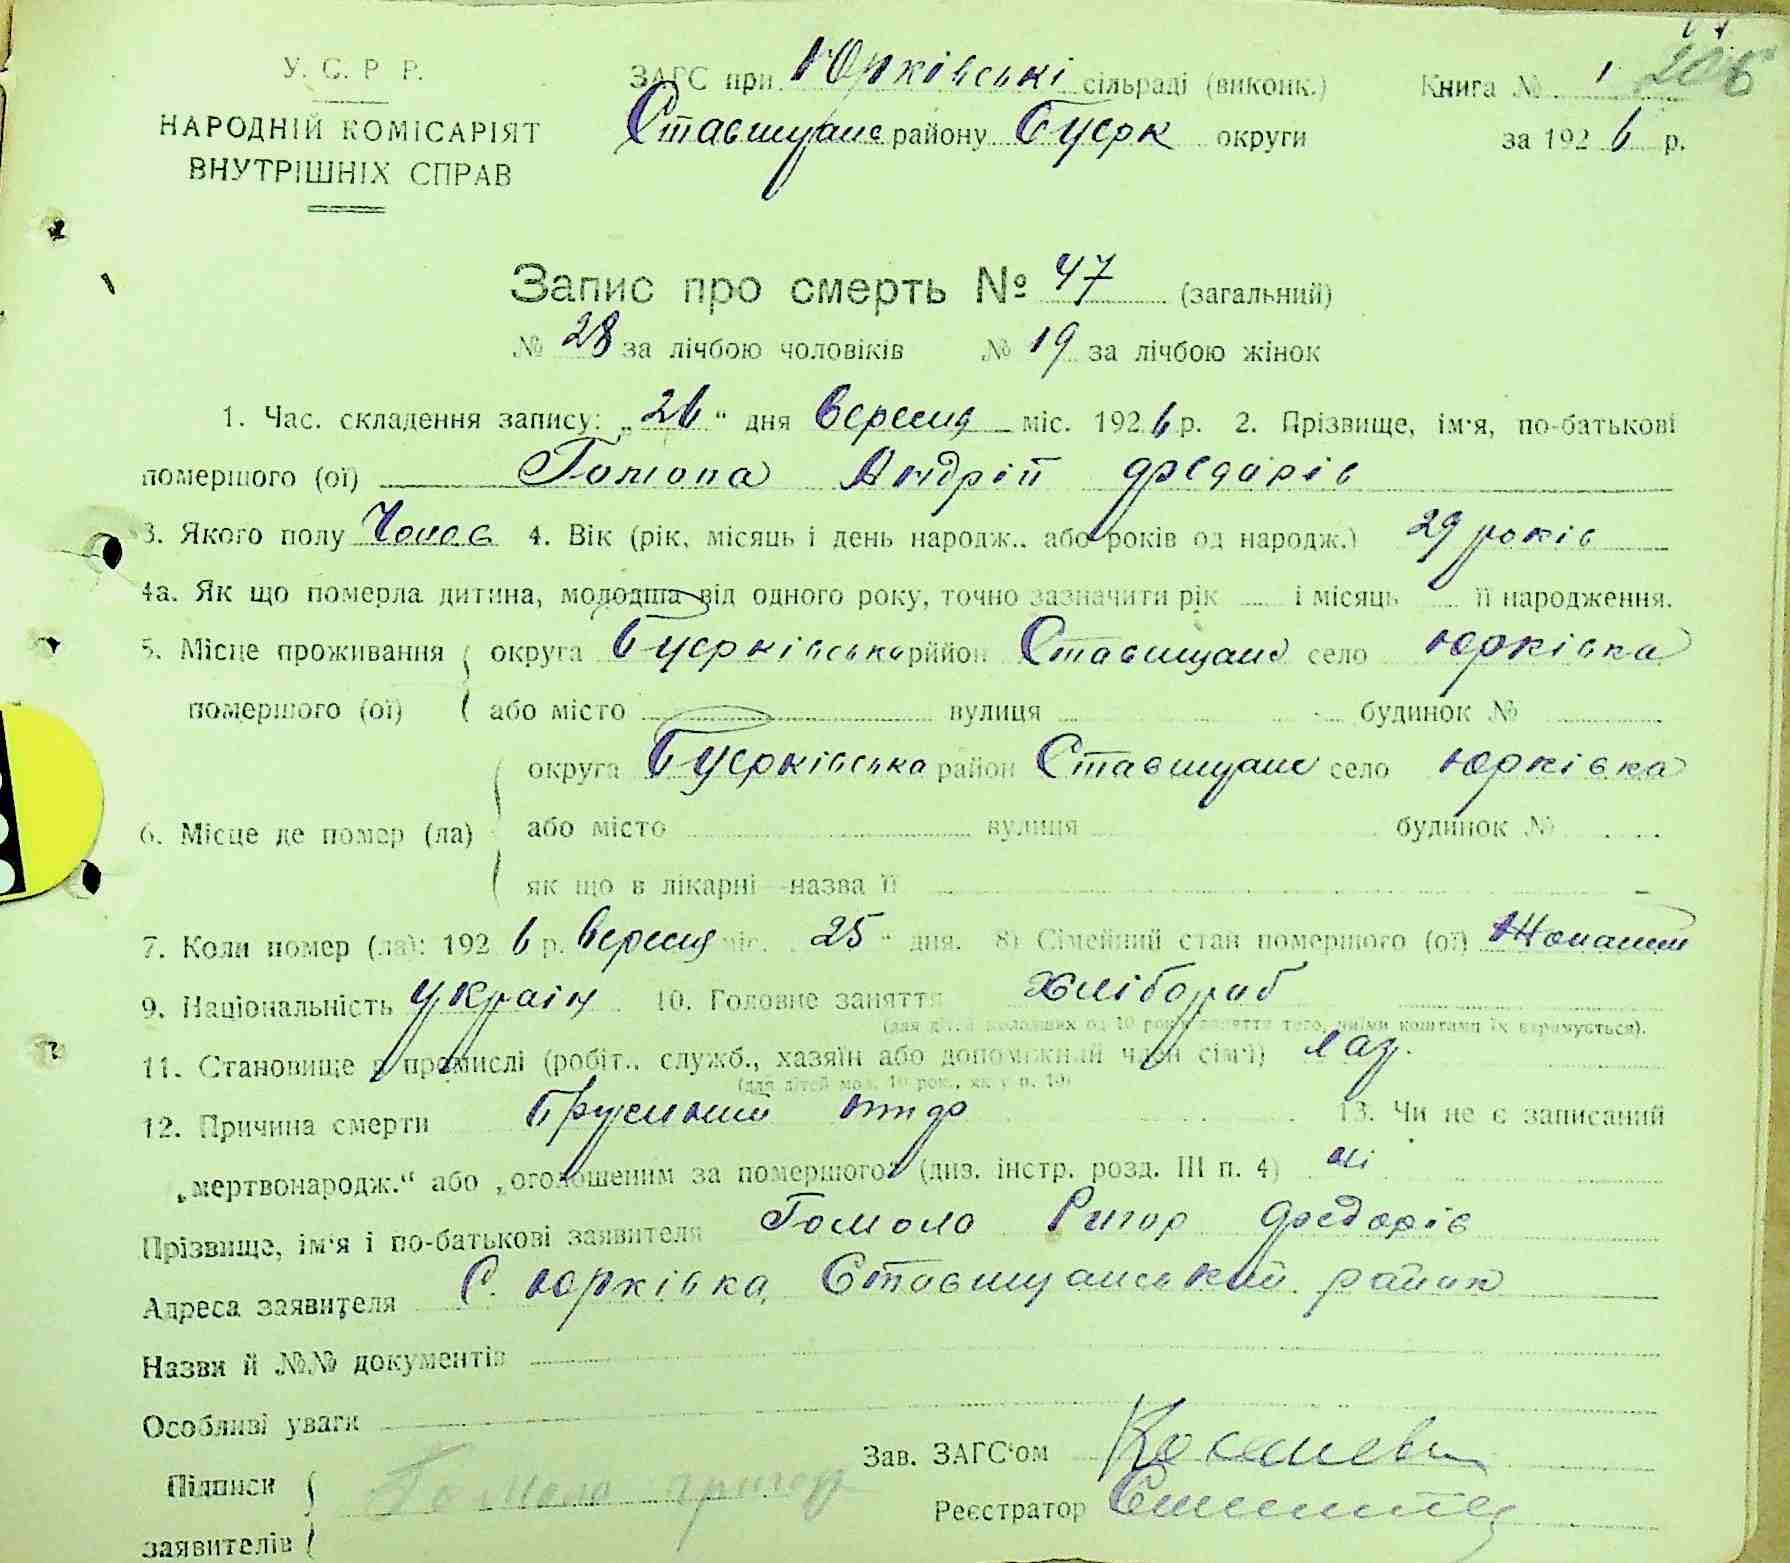 206
У. С. Р Р. ЗАГС при Юрківські сільраді (виконк.) Книга № 1
НАРОДНІЙ КОМІСАРІЯТ Ставищанс району Буцрк округи за 1926 р.
ВНУТРІШНІХ СПРАВ
Запис про смерть № 47 (загальний)
№ 28 за лічбою чоловіків № 19 за лічбою жінок
1. Час. складення запису: „26“ дня вересня міс. 1926 р. 2. Прізвище, ім'я, по-батькові
помершого (ої) Гомола Андрій Федорів
3. Якого полу Чолов 4. Вік (рік, місяць і день народж., або років од народж.) 29 років
4а. Як що померла дитина, молодша від одного року, точно зазначити рік і місяць її народження.
5. Місце проживання округа район Ставищанс село Юрківка
помершого (ої) або місто вулиця будинок №
округа район Ставищанс село Юрківка
6. Місце де помер (ла) або місто вулиця будинок №
як що в лікарні—назва її
7. Коли помер (ла): 1926 р. вересня міс. 25 “ дня. 8) Сімейний стан помершого (ої) Жонатий
9. Національність україн 10. Головне заняття Хлібороб
(для дітей молодших од 10 років заняття того, чиїми коштами їх втримується).
11. Становище в промислі (робіт., служб., хазяїн або допоміжний член сім'ї)
(для дітей мол. 10 рок., як у п. 10)
12. Причина смерти 13. Чи не є записаний
„мертвонародж.“ або „оголошеним за помершого“ (див. інстр. розд. III п. 4) ні
Прізвище, ім'я і по-батькові заявителя Гомоло Григор Федорів
Адреса заявителя С. Юрківка, Ставищанський район
Назви й №№ документів
Особливі уваги
Зав. ЗАГС'ом
Підписи Гомоло григор
Реєстратор
заявителів